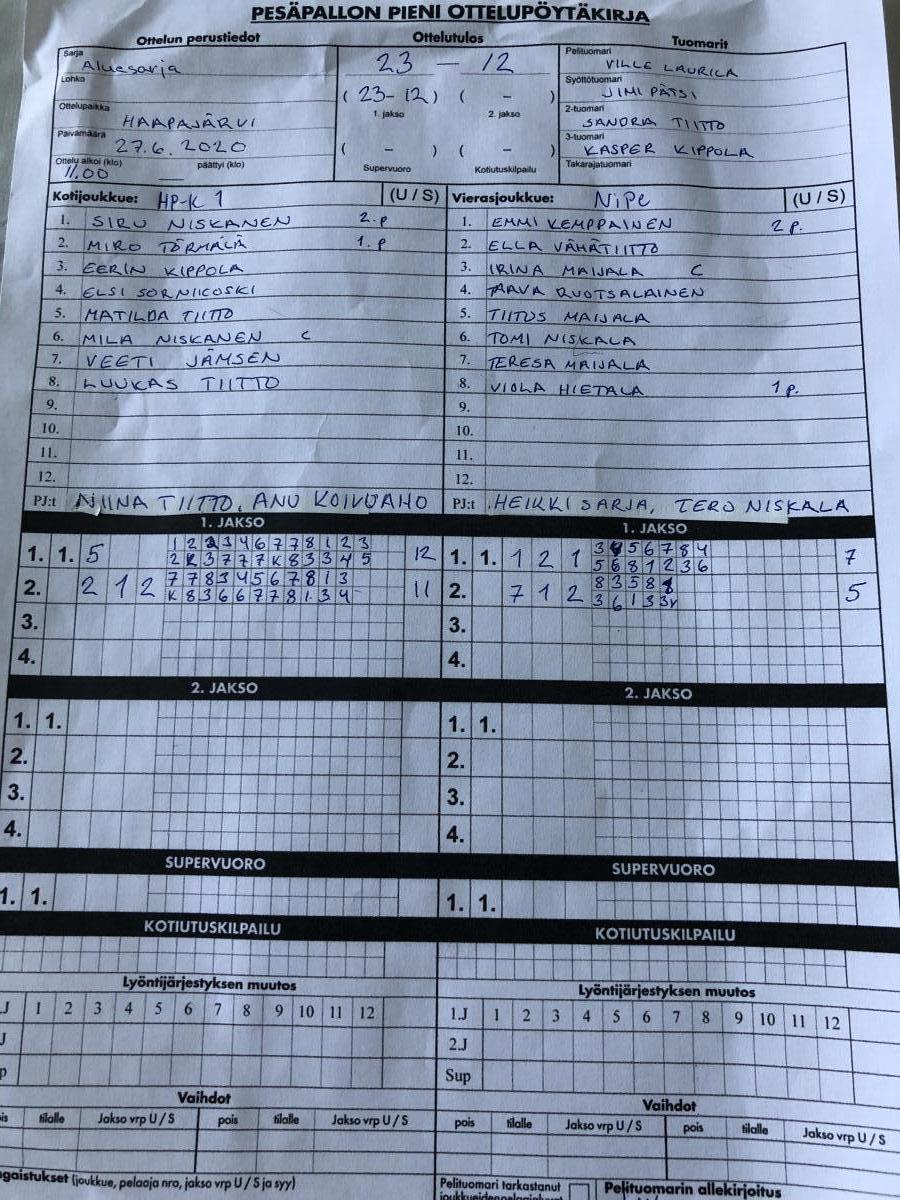 PESÄPALLON PIENI OTTELUPÖYTÄKIRJA
Ottelun perustiedot
Sarja
Aluesarja
Lohko
Ottelupaikka
HAAPAJÄRVI
Päivämäärä
27.6.2020
Ottelu alkoi (klo) päättyi (klo)
11.00
Ottelutulos
23 — 12
(23-12) ( - )
1. jakso 2. jakso
( - ) ( - )
Supervuoro Kotiutuskilpailu
Tuomarit
Pelituomari
VILLE LAURILA
Syöttötuomari
JIMI PÄTSI
2-tuomari
SANDRA TIITTO
3-tuomari
KASPER KIPPOLA
Takarajatuomari
Kotijoukkue: HP-K 1 (U / S)
1. SIRU NISKANEN 2.p
2. MIRO TÖRMÄLÄ 1.p
3. EERIN KIPPOLA
4. ELSI SORNIKOSKI
5. MATILDA TIITTO
6. MILA NISKANEN C
7. VEETI JÄMSEN
8. LUUKAS TIITTO
9.
10.
11.
12.
PJ:t NIINA TIITTO, ANU KOIVUAHO
Vierasjoukkue: NiPe (U / S)
1. EMMI KEMPPAINEN 2p.
2. ELLA VÄHÄTIITTO
3. IRINA MAIJALA C
4. AAVA RUOTSALAINEN
5. TIITUS MAIJALA
6. TOMI NISKALA
7. TERESA MAIJALA
8. VIOLA HIETALA 1p.
9.
10.
11.
12.
PJ:t HEIKKI SARJA, TERO NISKALA
1. JAKSO
1. 1. 5 1 2 2 3 4 6 7 7 8 1 2 3 12
2 K 3 7 7 7 K 8 3 3 4 5
2. 2 1 2 7 7 8 3 4 5 6 7 8 1 3 11
K 8 3 6 6 7 7 8 1 3 4
3.
4.
1. JAKSO
1. 1. 1 2 1 3 4 5 6 7 8 4 7
5 6 8 1 2 3 6
2. 7 1 2 8 3 5 8 8 5
3 6 1 3 3y
3.
4.
2. JAKSO
1. 1.
2.
3.
4.
2. JAKSO
1. 1.
2.
3.
4.
SUPERVUORO
1. 1.
SUPERVUORO
1. 1.
KOTIUTUSKILPAILU
KOTIUTUSKILPAILU
Lyöntijärjestyksen muutos
.J 1 2 3 4 5 6 7 8 9 10 11 12
J
p
Lyöntijärjestyksen muutos
1.J 1 2 3 4 5 6 7 8 9 10 11 12
2.J
Sup
Vaihdot
is tilalle Jakso vrp U / S pois tilalle Jakso vrp U / S
Vaihdot
pois tilalle Jakso vrp U / S pois tilalle Jakso vrp U / S
ngaistukset (joukkue, pelaaja nro, jakso vrp U / S ja syy)
Pelituomari tarkastanut
Pelituomarin allekirjoitus